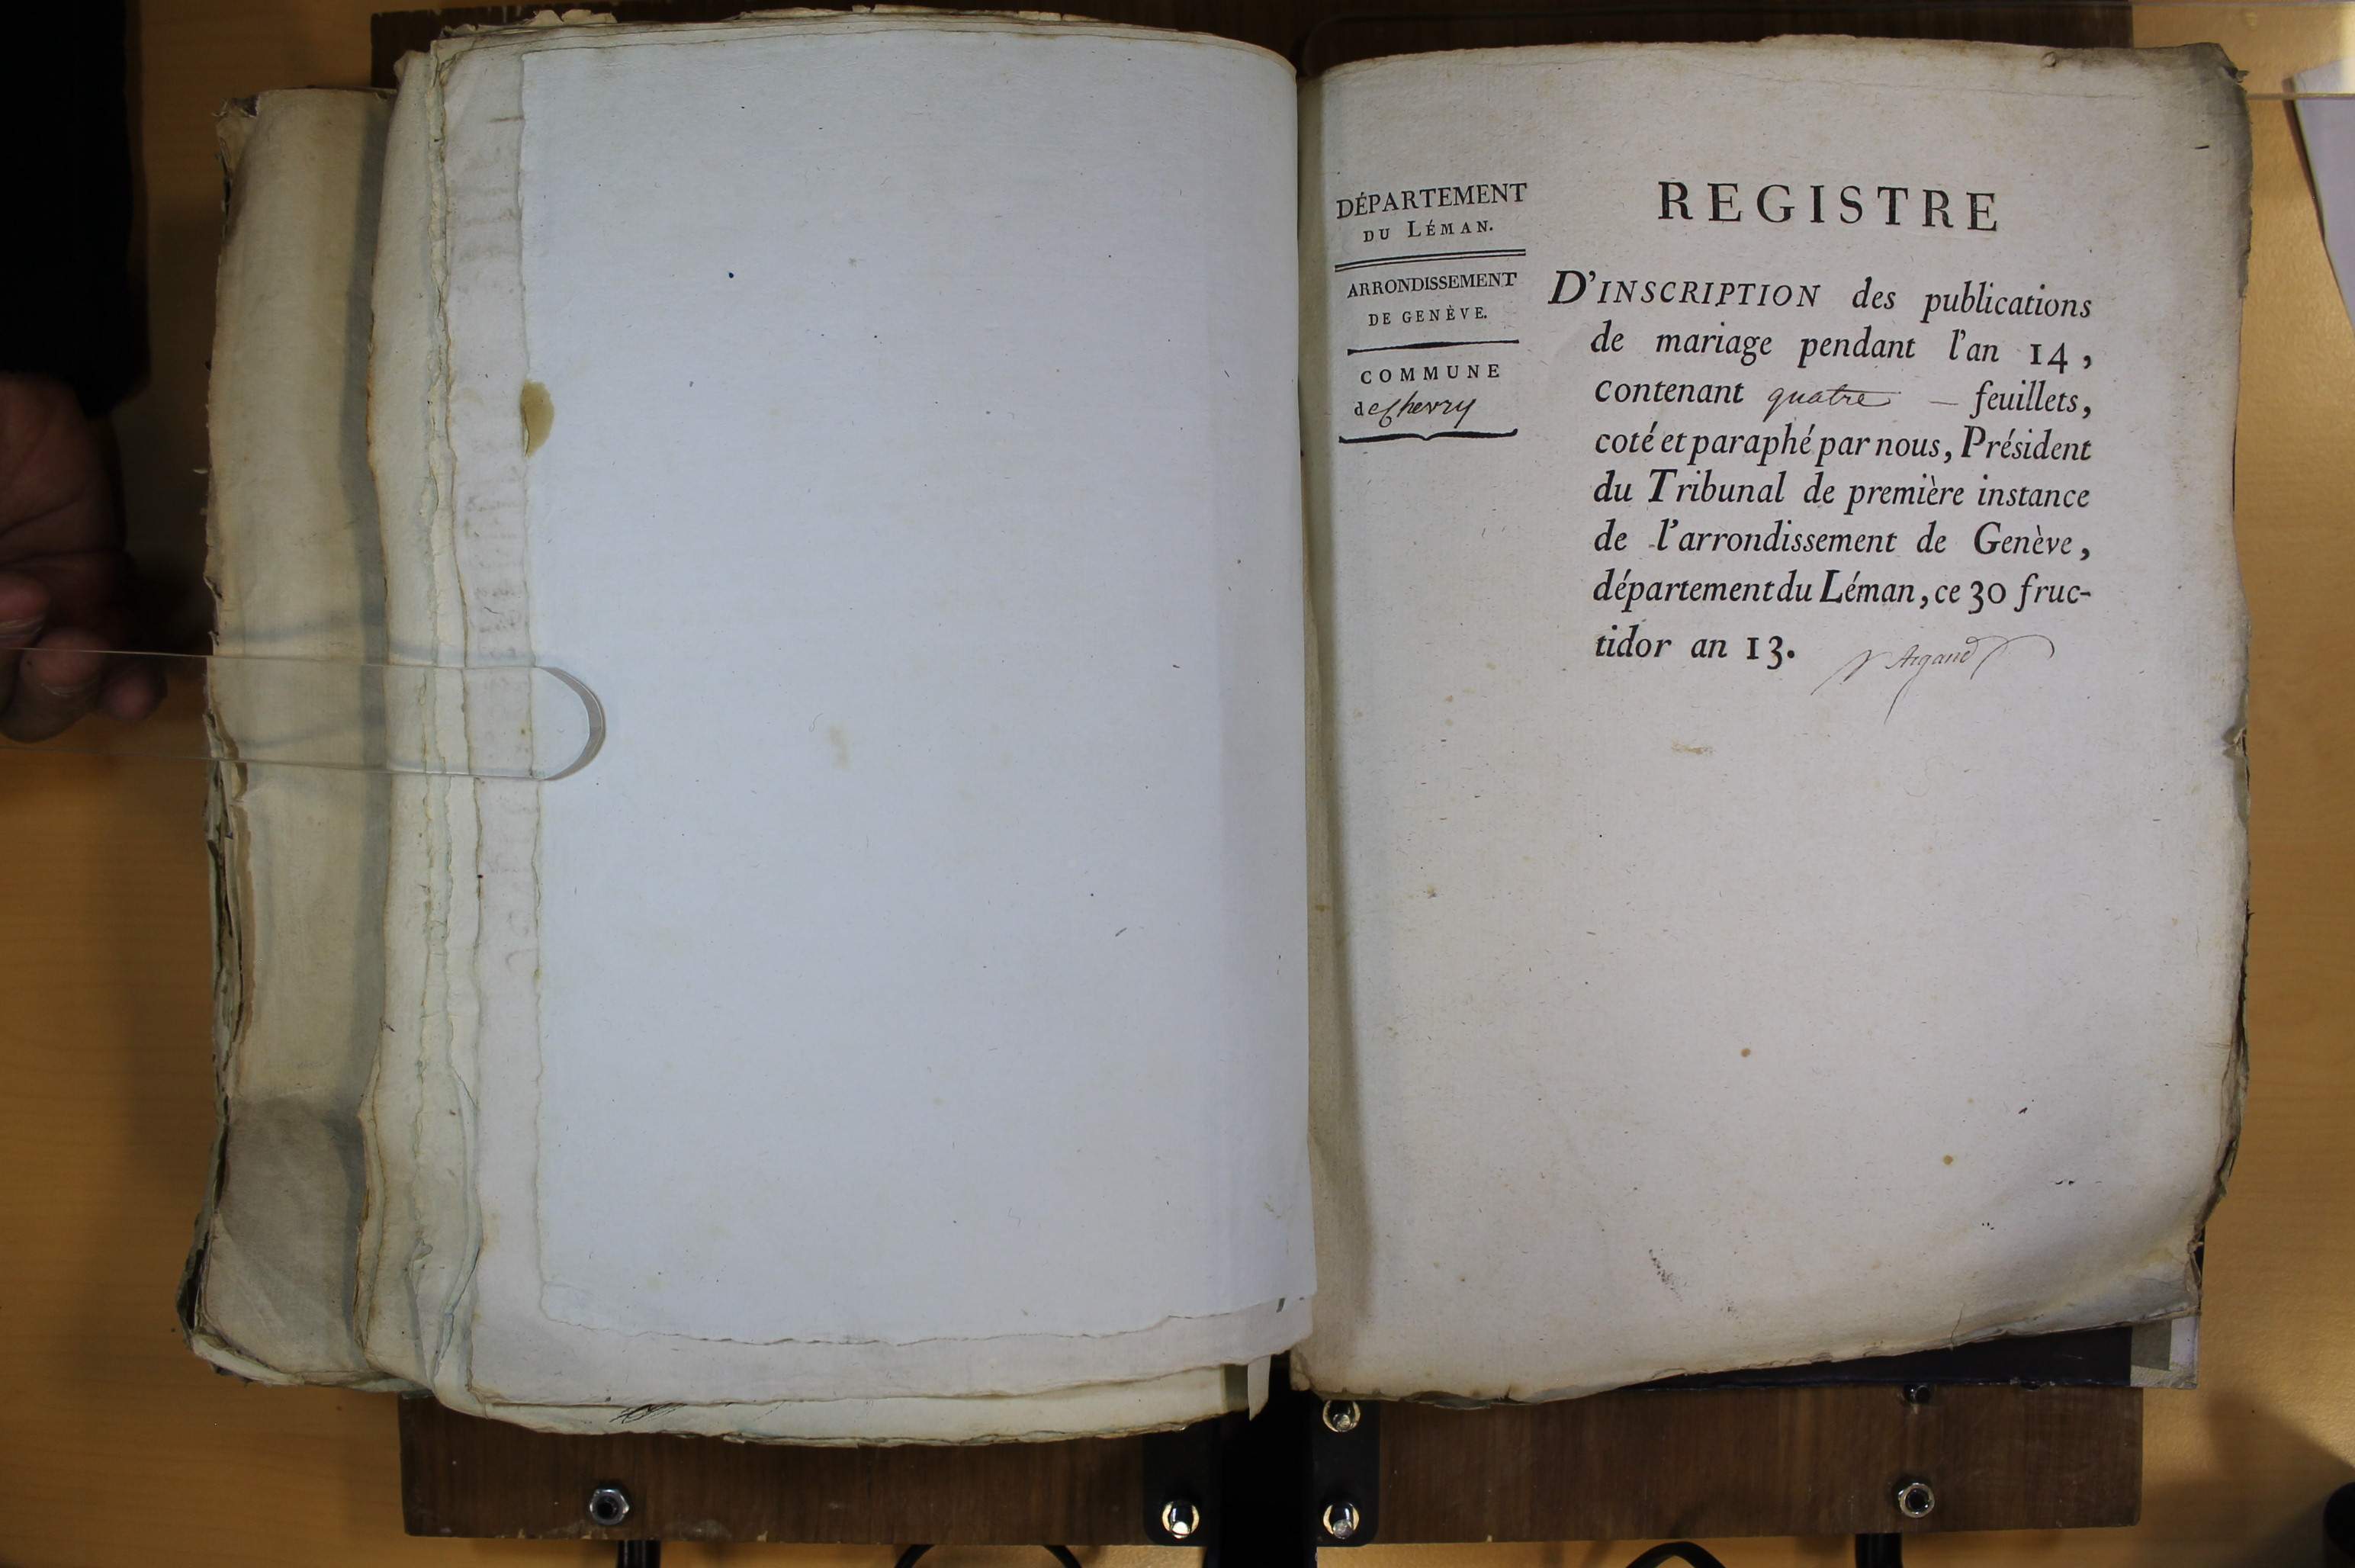 DÉPARTEMENT
DU LÉMAN.
ARRONDISSEMENT
DE GENÈVE.
COMMUNE
de Chevry
REGISTRE
D'INSCRIPTION des publications
de mariage pendant l'an 14,
contenant quatre — feuillets,
coté et paraphé par nous, Président
du Tribunal de première instance
de l'arrondissement de Genève,
département du Léman, ce 30 fruc-
tidor an 13.
Argand